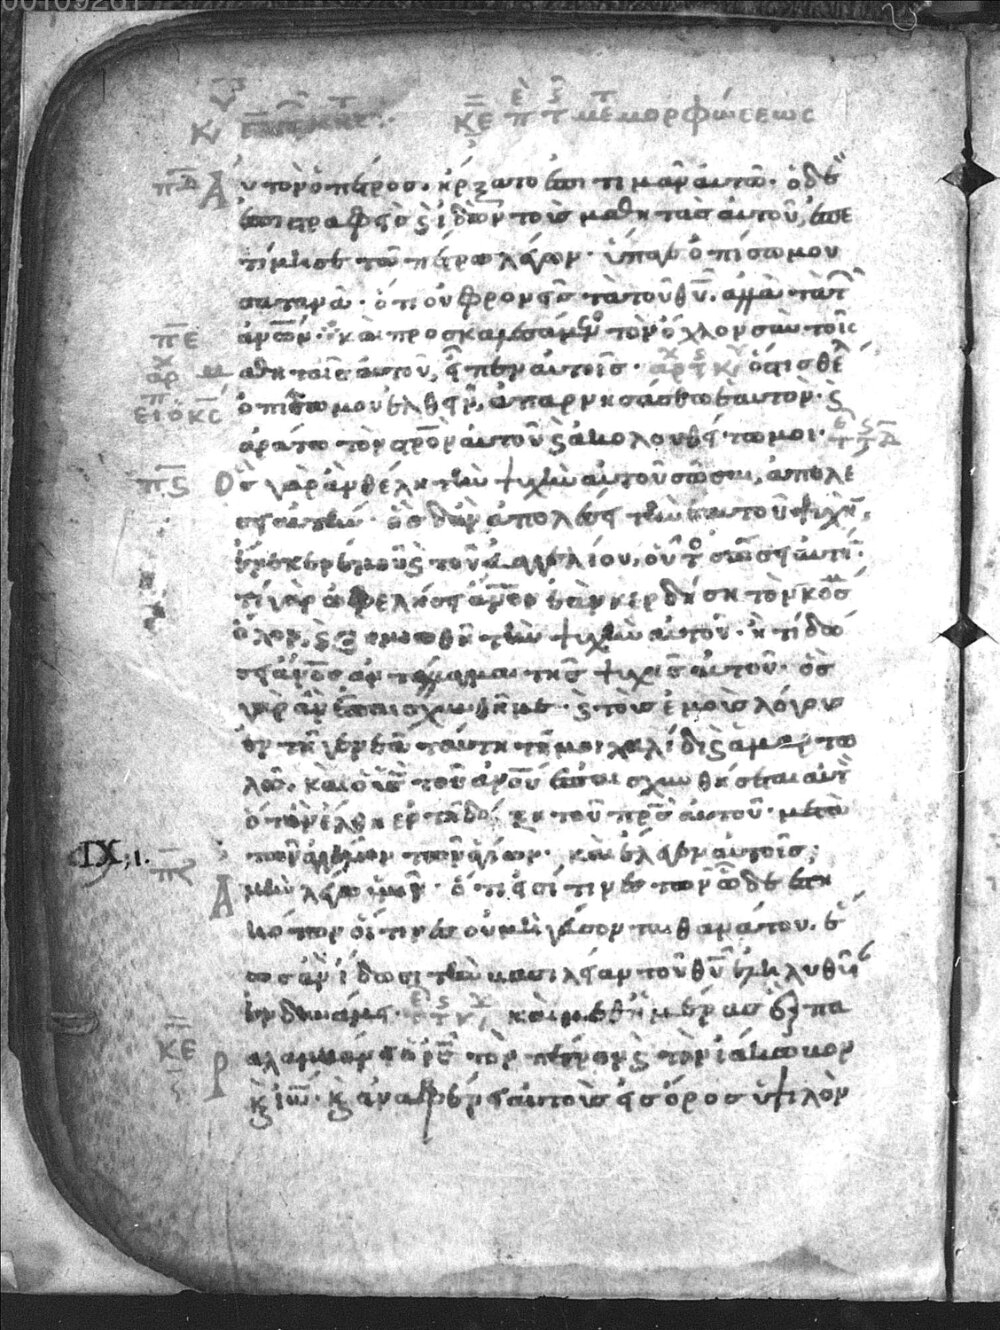 00109261
ΚΕ περὶ τ μεμορφώσεως
ΠΔ Αυτὸν ὁ πέτρος. ἠρξατο ἐπιτιμᾶν αὐτῶ. ὁ δὲ
ἐπιστραφεὶς ϛ ἰδὼν τοὺς μαθητὰς αὐτοῦ, ἐπε
τίμησε τῶ πέτρω λέγων. ὕπαγε ὀπίσω μου
σατανᾶ. ὅτι οὐ φρονεῖς τὰ τοῦ θυ. ἀλλὰ τὰ τ
ΠΕ ἀνων. καὶ προσκαλεσάμεν τὸν ὄχλον σὺν τοῖς
αρχ μαθηταῖς αὐτοῦ, εἶπεν αὐτοῖς. ὅστις θέλ
ὀπίσω μου ἐλθεῖν, ἀπαρνησάσθω ἑαυτὸν. ϛ
ἀράτω τὸν σρον αὐτοῦ ϛ ἀκολουθεί τω μοι.
Πϛ Ὃς γὰρ ἂν θέλη τὴν ψυχὴν αὐτοῦ σῶσαι, ἀπολέ
σει αὐτήν. ὃς δ' ἂν ἀπολέσει τὴν ἑαυτοῦ ψυχὴν,
ἕνεκεν ἐμοῦ ϛ τοῦ εὐαγγελίου, οὗτο σώσει αὐτή.
τί γὰρ ὠφελήσει ἄνον ἐὰν κερδήση τὸν κόσ
ὅλον, ϛ ζημιωθῆ τὴν ψυχὴν αὐτοῦ. ἢ τί δώ
σει ἄνος ἀντάλλαγμα τῆς ψυχῆς αὐτοῦ. ὃς
γὰρ ἂν ἐπαισχυνθῆ με. ϛ τοὺς ἐμοὺς λόγους
ἐν τῆ γενεᾶ ταύτη τῆ μοιχαλίδι ϛ ἁμαρτω
λῶ. καὶ ὁ υς τοῦ ἀνου ἐπαισχυνθήσεται αὐτ
ὅταν ἔλθη ἐν τῆ δόξη τοῦ πρς αὐτοῦ. μετὰ
IX, 1. τῶν ἀγγέλων τῶν ἁγίων. καὶ ἔλεγεν αὐτοῖς.
ΠΖ Αμὴν λέγω ὑμῖν. ὅτι εἰσί τινες τῶν ὧδε ἑστη
κότων οἵτινες οὐ μὴ γεύσον ται θανάτου. ἕ
ως ἂν ἴδωσι τὴν βασιλείαν τοῦ θυ ἐληλυθυῖ
ἐν δυνάμει. καὶ μεθ' ἡμέρας ἓξ πα
ΚΕ Ραλαμβάνει ὁ ις τὸν πέτρον ϛ τὸν ἰάκωβον
ϗ ἰω. ϗ ἀναφέρει αὐτοὺς εἰς ὄρος ὑψιλὸν